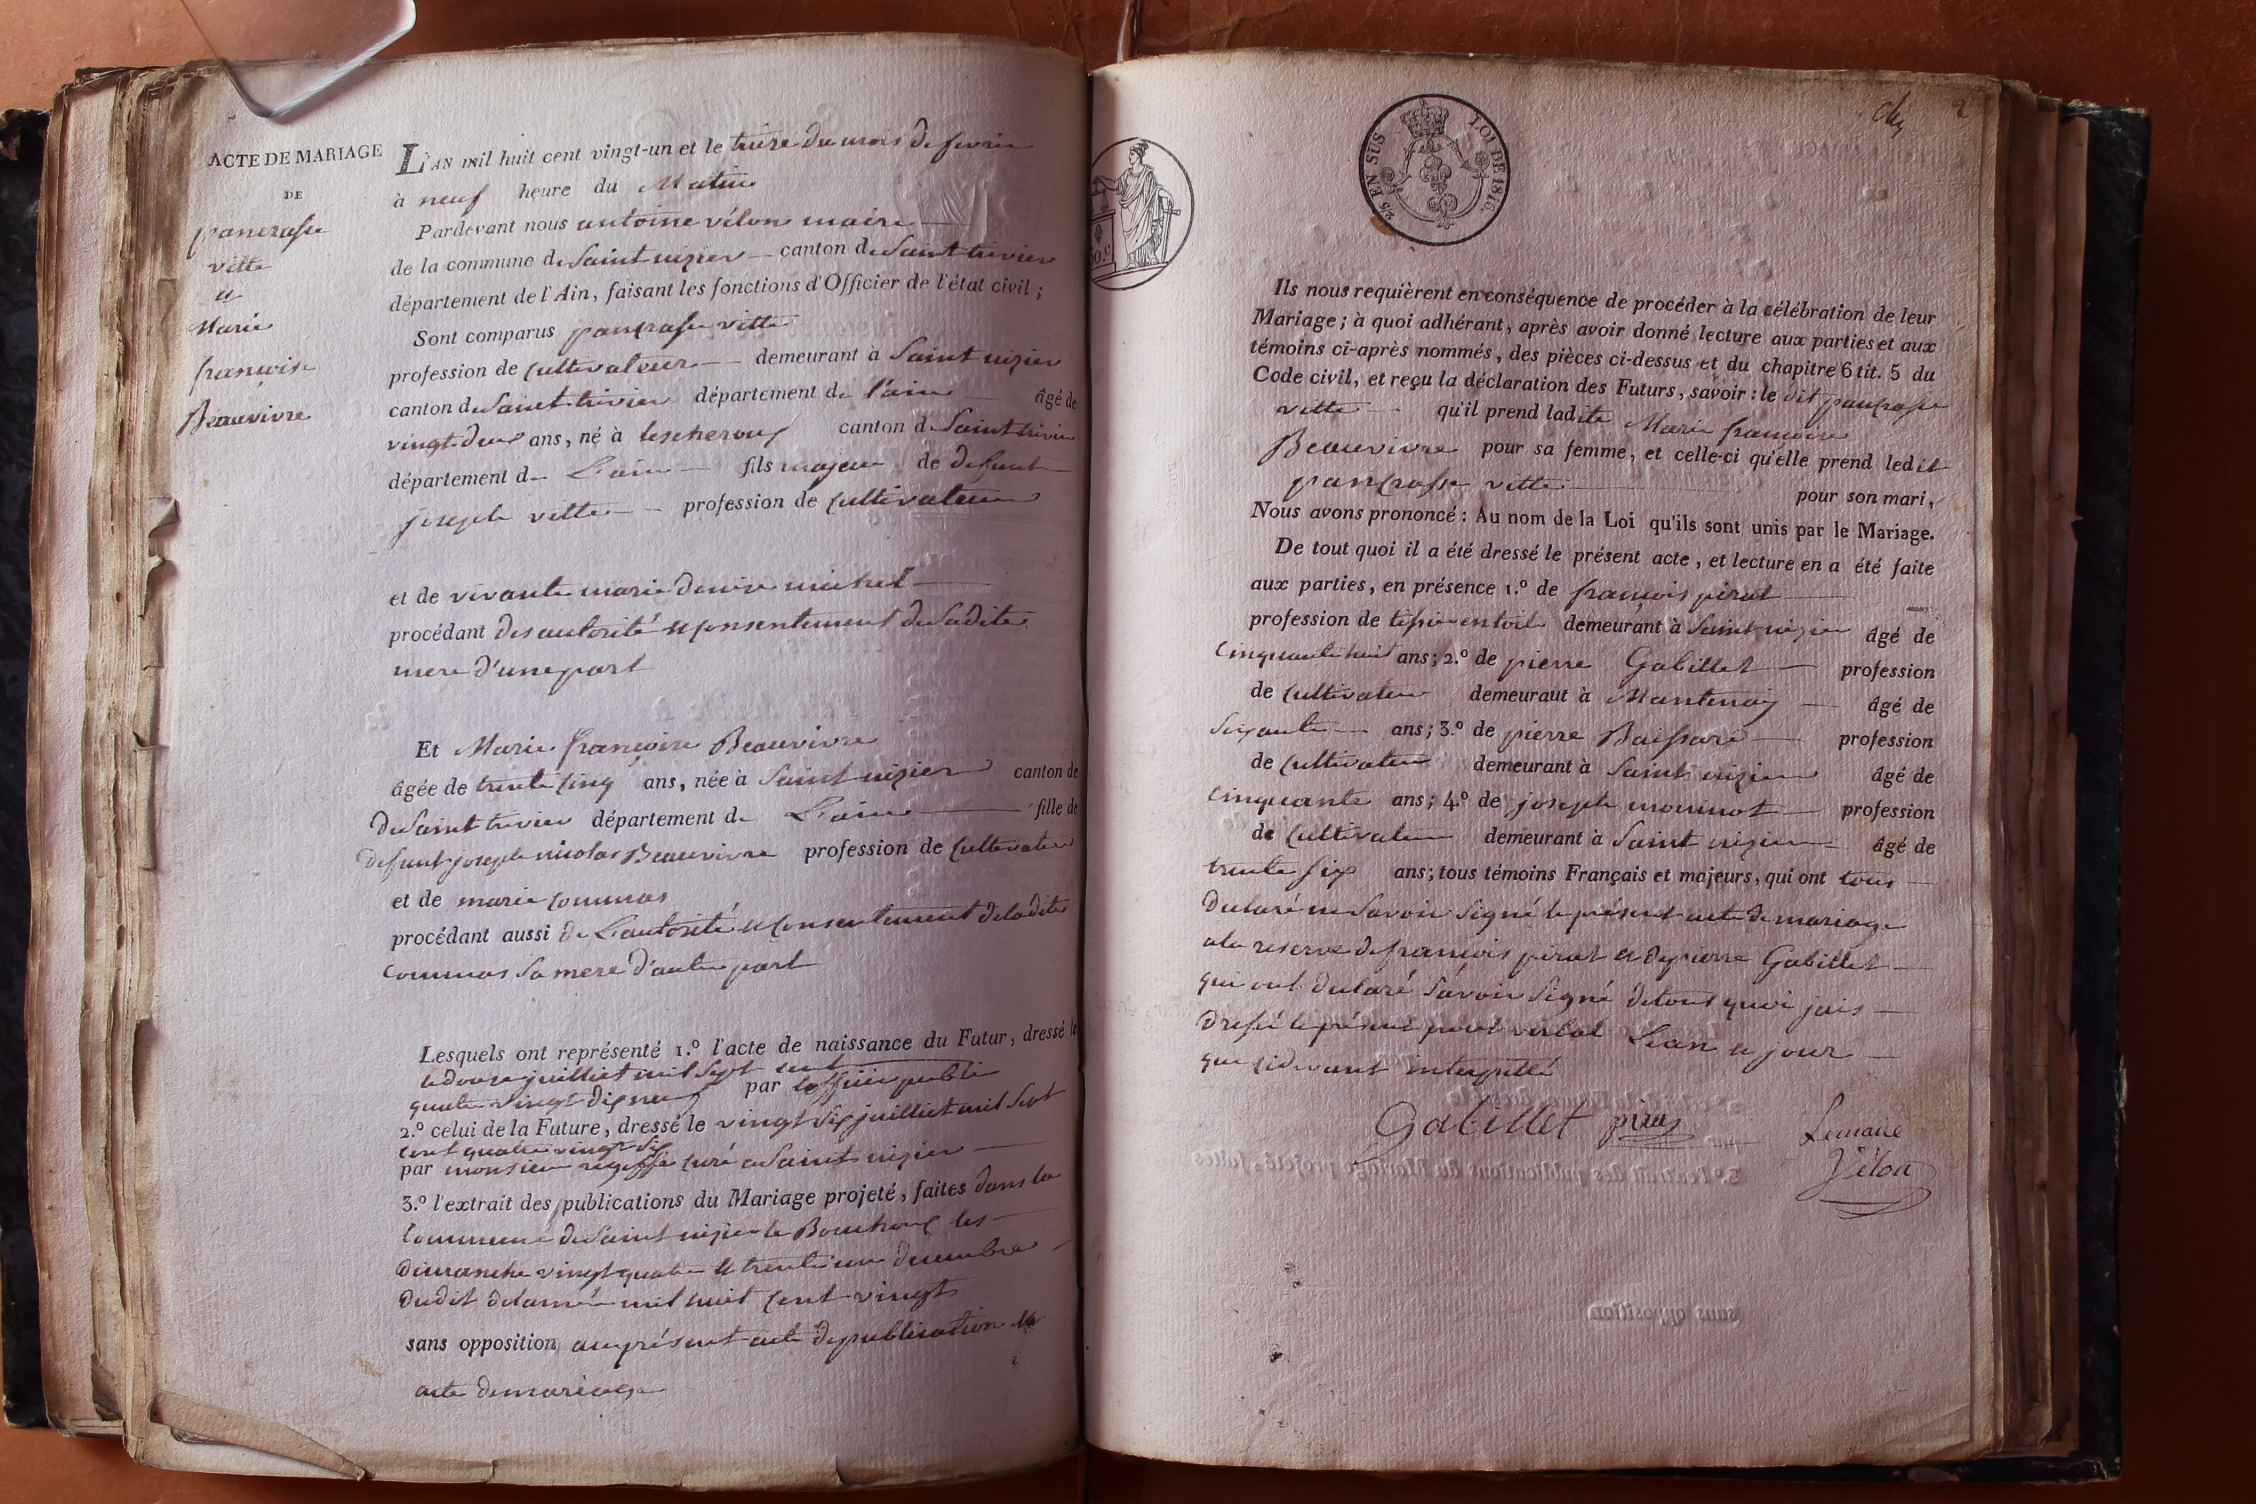 ACTE DE MARIAGE
DE
pancrasse
vitte
et
Marie
françoise
Beauvivre
L'AN mil huit cent vingt-un et le treize du mois de fevrier
à neuf heure du Matin
Pardevant nous antoine vélon maire
de la commune de Saint nizier canton de Saint trivier
département de l'Ain, faisant les fonctions d'Officier de l'état civil ;
Sont comparus pancrasse vitte
profession de cultivateur demeurant à Saint nizier
canton de Saint trivier département de l'ain âgé de
vingt deux ans, né à lescheroux canton de Saint trivier
département de L'ain fils majeur de defunt
joseph vitte profession de cultivateur
et de vivante marie denise michel
procédant des autorité et consentement de Sadite
mere d'une part
Et Marie françoise Beauvivre
âgée de trente cinq ans, née à Saint nizier canton de
de Saint trivier département de L'ain fille de
defunt joseph nicolas Beauvivre profession de cultivateur
et de marie commas
procédant aussi de L'autorité et consentement deladite
commas Sa mere d'autre part
Lesquels ont représenté 1.º l'acte de naissance du Futur, dressé le
le douze juilliet mil Sept cent
quatre vingt dix neuf par loffiier publi
2.º celui de la Future, dressé le vingt Six juilliet mil Sept
cent quatre vingt Six
par monsieur curé a Saint nizier
3.º l'extrait des publications du Mariage projeté, faites dans la
commune de Saint nizier le Bouchoux les
dimanche vingt quatre et trente un decembre
dudit delannée mil huit cent vingt
sans opposition au présent acte de publication
acte de mariage
25 EN SUS LOI DE 1816.
2
Ils nous requièrent en conséquence de procéder à la célébration de leur
Mariage ; à quoi adhérant, après avoir donné lecture aux parties et aux
témoins ci-après nommés, des pièces ci-dessus et du chapitre 6 tit. 5 du
Code civil, et reçu la déclaration des Futurs, savoir : le dit pancrasse
vitte qu'il prend ladite Marie françoise
Beauvivre pour sa femme, et celle-ci qu'elle prend ledit
pancrasse vitte pour son mari,
Nous avons prononcé : Au nom de la Loi qu'ils sont unis par le Mariage.
De tout quoi il a été dressé le présent acte, et lecture en a été faite
aux parties, en présence 1.º de françois pirat
profession de tissier en toile demeurant à Saint nizier âgé de
cinquante huit ans ; 2.º de pierre Gabillet profession
de cultivateur demeuraut à Mantenay âgé de
Soixante ans ; 3.º de pierre Baissard profession
de cultivateur demeurant à Saint nizier âgé de
cinquante ans ; 4.º de joseph monnot profession
de cultivateur demeurant à Saint nizier âgé de
trente Six ans ; tous témoins Français et majeurs, qui ont tous
declaré ne Savoir Signé le présent acte de mariage
ala reserve de françois pirat et de pierre Gabillet
qui ont declaré Savoir Signé detout quoi jais
dressé le présent verbal L'an et jour
que cidevant
Gabillet pirat Lemaire
Vélon